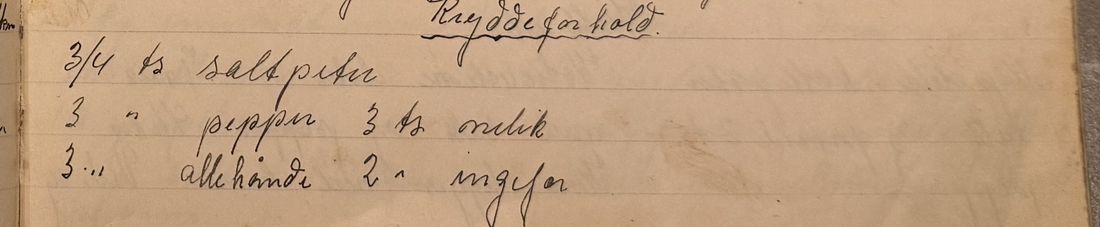 Kryddeforhold.
3/4 ts saltpeter
3 " pepper 3 ts nellik
3 .,, allehånde 2 " ingefær